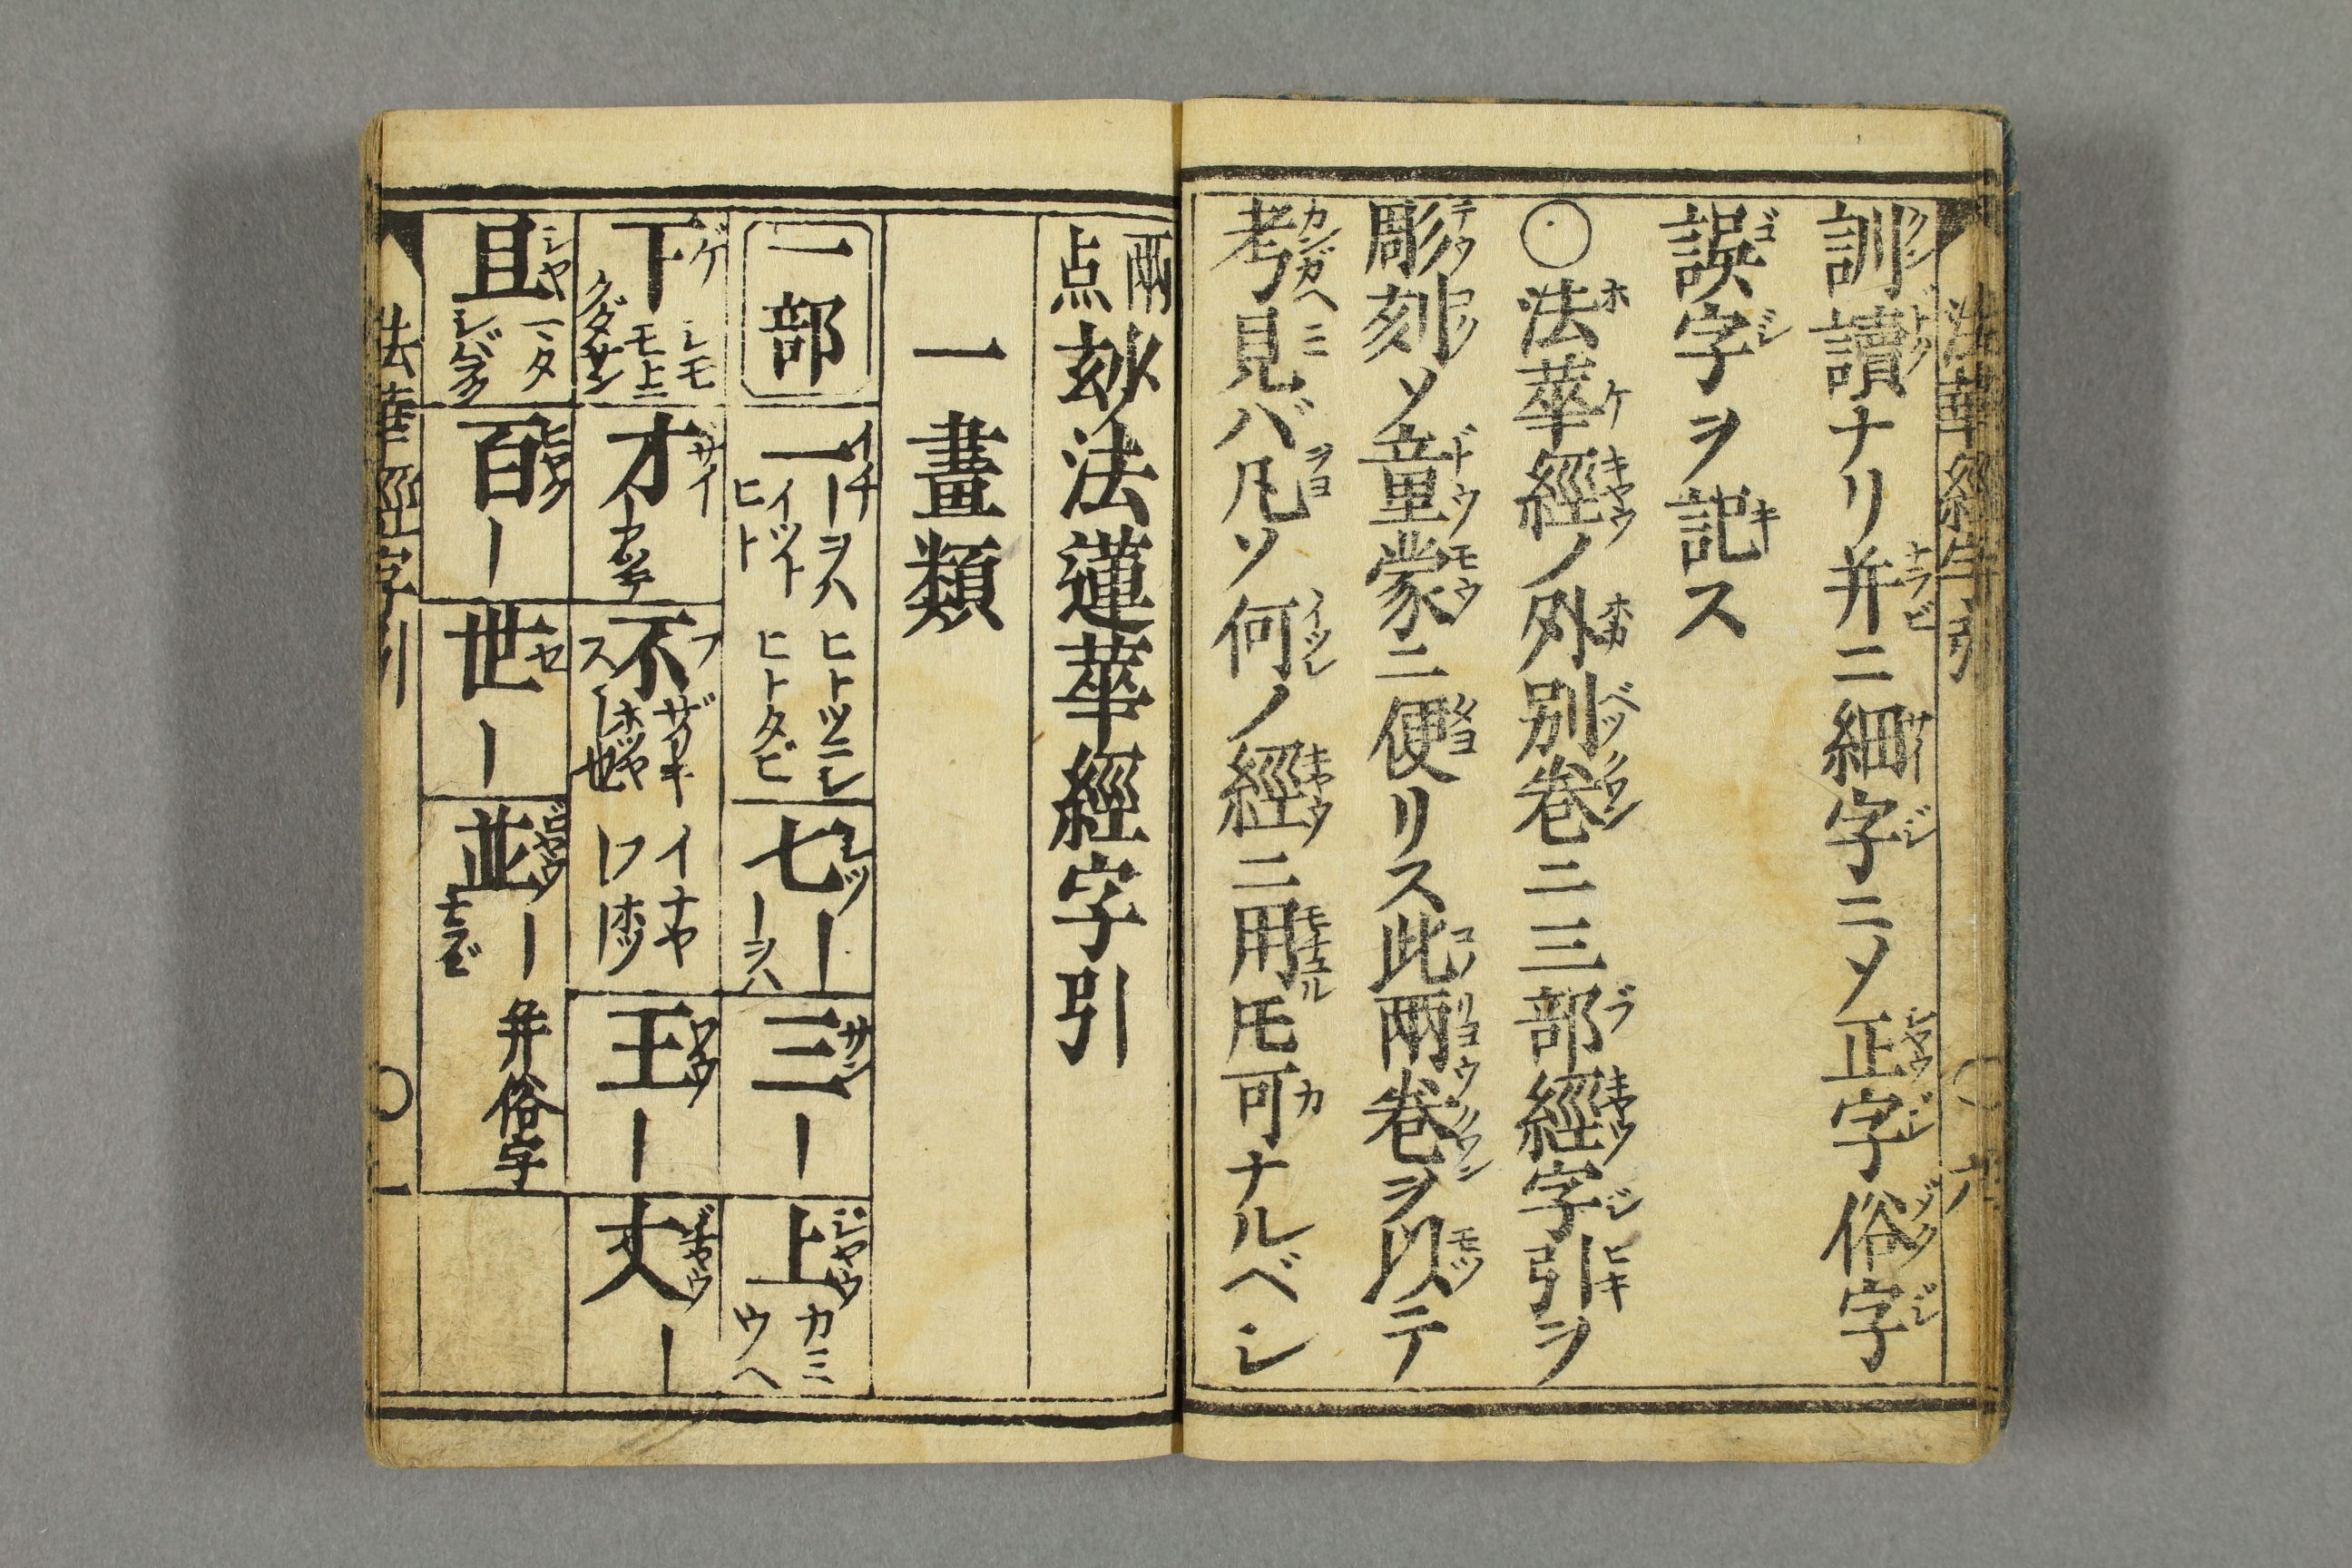 訓讀ナリ并ニ細字ニノ正字俗字
誤字ヲ記ス
〇法華經ノ外別巻ニ三部經字引ヲ
彫刻ソ童蒙ニ便リス此兩巻ヲ以テ
考見バ凡ソ何ノ經ニ用𪜈可ナルベシ
法華經字引 〇 六
兩点 妙法蓮華經字引
一畫類
一部
一 イチ ーヲハ イツイト ヒト ヒトツニシ ヒトタビ
七 シツ ー ーヲハ
三 サン ー
上 ジヤウ カミ ウヘ
下 ゲ シモ モト クダサン
才 ザイ
不 フ ス ザリキ イナヤ
王 ワウ ー
丈 ヂヤウ ー
且 シヤ マタ シバラク
百 ヒヤク ー
世 セ ー
並 ビヤウ ー ナラビ 并俗字
法華經字引 〇 一